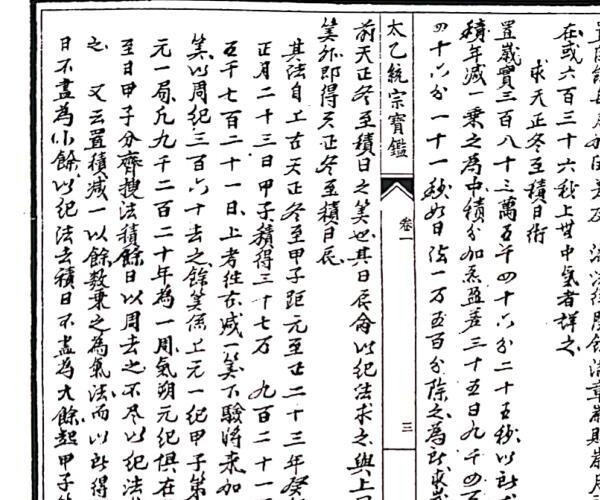 在或六百三十六秒上世中氣者詳之
求天正冬至積日術
置歲實三百八十三萬五千四十六分二十五秒以所
積年減一乗之為中積分加氣盈差三十五日九千四百
四十六分一十一秒如日法一万五百分除之為所求
太乙統宗寶鑑
卷一
三
前天正冬至積日之筭也其日辰命以紀法求之與上同
筭外即得天正冬至積日辰
其法自上古天正冬至甲子距元至正二十三年癸
正月二十三日甲子積得三十七万 九百二十一
五千七百二十一日上考往古减一筭下驗將來加
筭以周紀三百六十去之餘筭係上元一紀甲子第
元一局凡九千二百二十年為一周氣朔元紀俱在
至日甲子分齊捜法積餘日以周去之不尽以紀法
之 又云置積减一以餘数乗之為氣法而以所得
日不盡為小餘以紀法去積日不盡為大餘起甲子